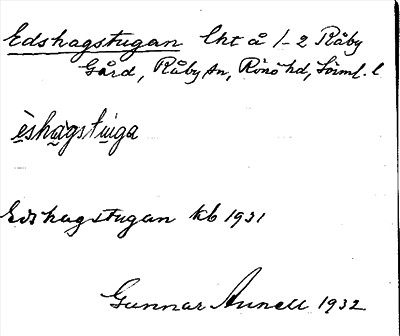 Edshagstugan lht å 1-2 Råby
Gård, Råby sn, Rönö hd, Sörml. l
èshàgstuga
Edshagstugan kb 1931
Gunnar Annell 1932